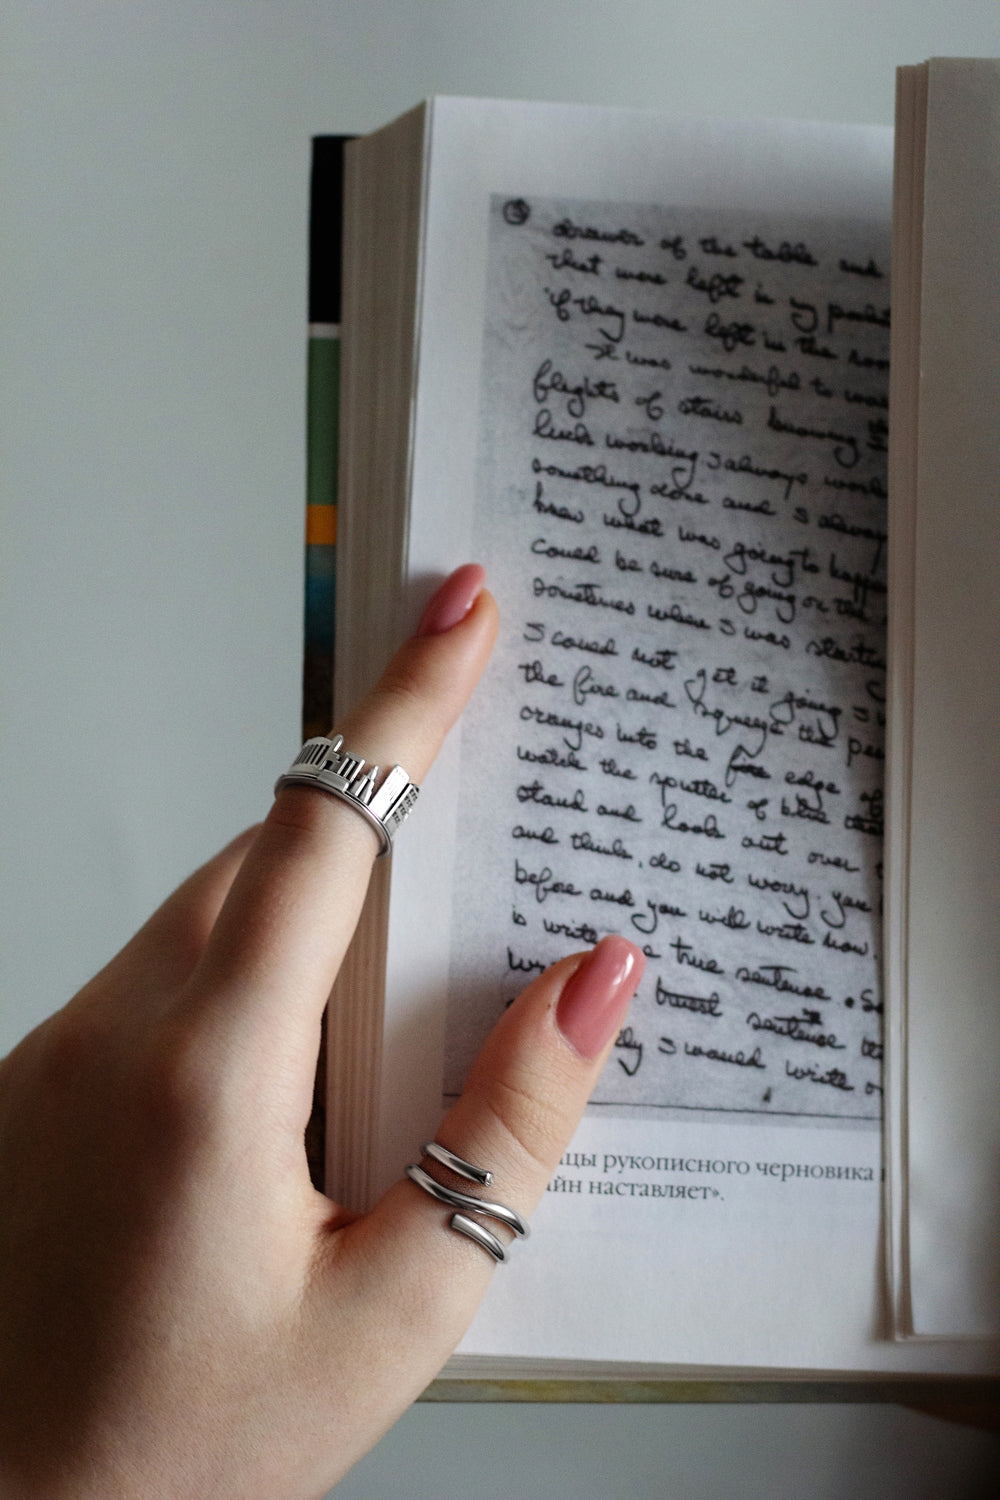 ③ drawer of the table and
that were left in my pocket
if they were left in the room
It was wonderful to wal
flights of stairs knowing
luck working. I always work
something done and I always
knew what was going to happe
could be sure of going on the
sometimes when I was starting
I could not get it going I
the fire and squeeze the pee
oranges into the fire edge of
watch the sputter of blue that
stand and look out over t
and think, do not worry. you
before and you will write now.
is write true sentence. So
wr truest sentence th
ly I would write o
цы рукописного черновика
йн наставляет».